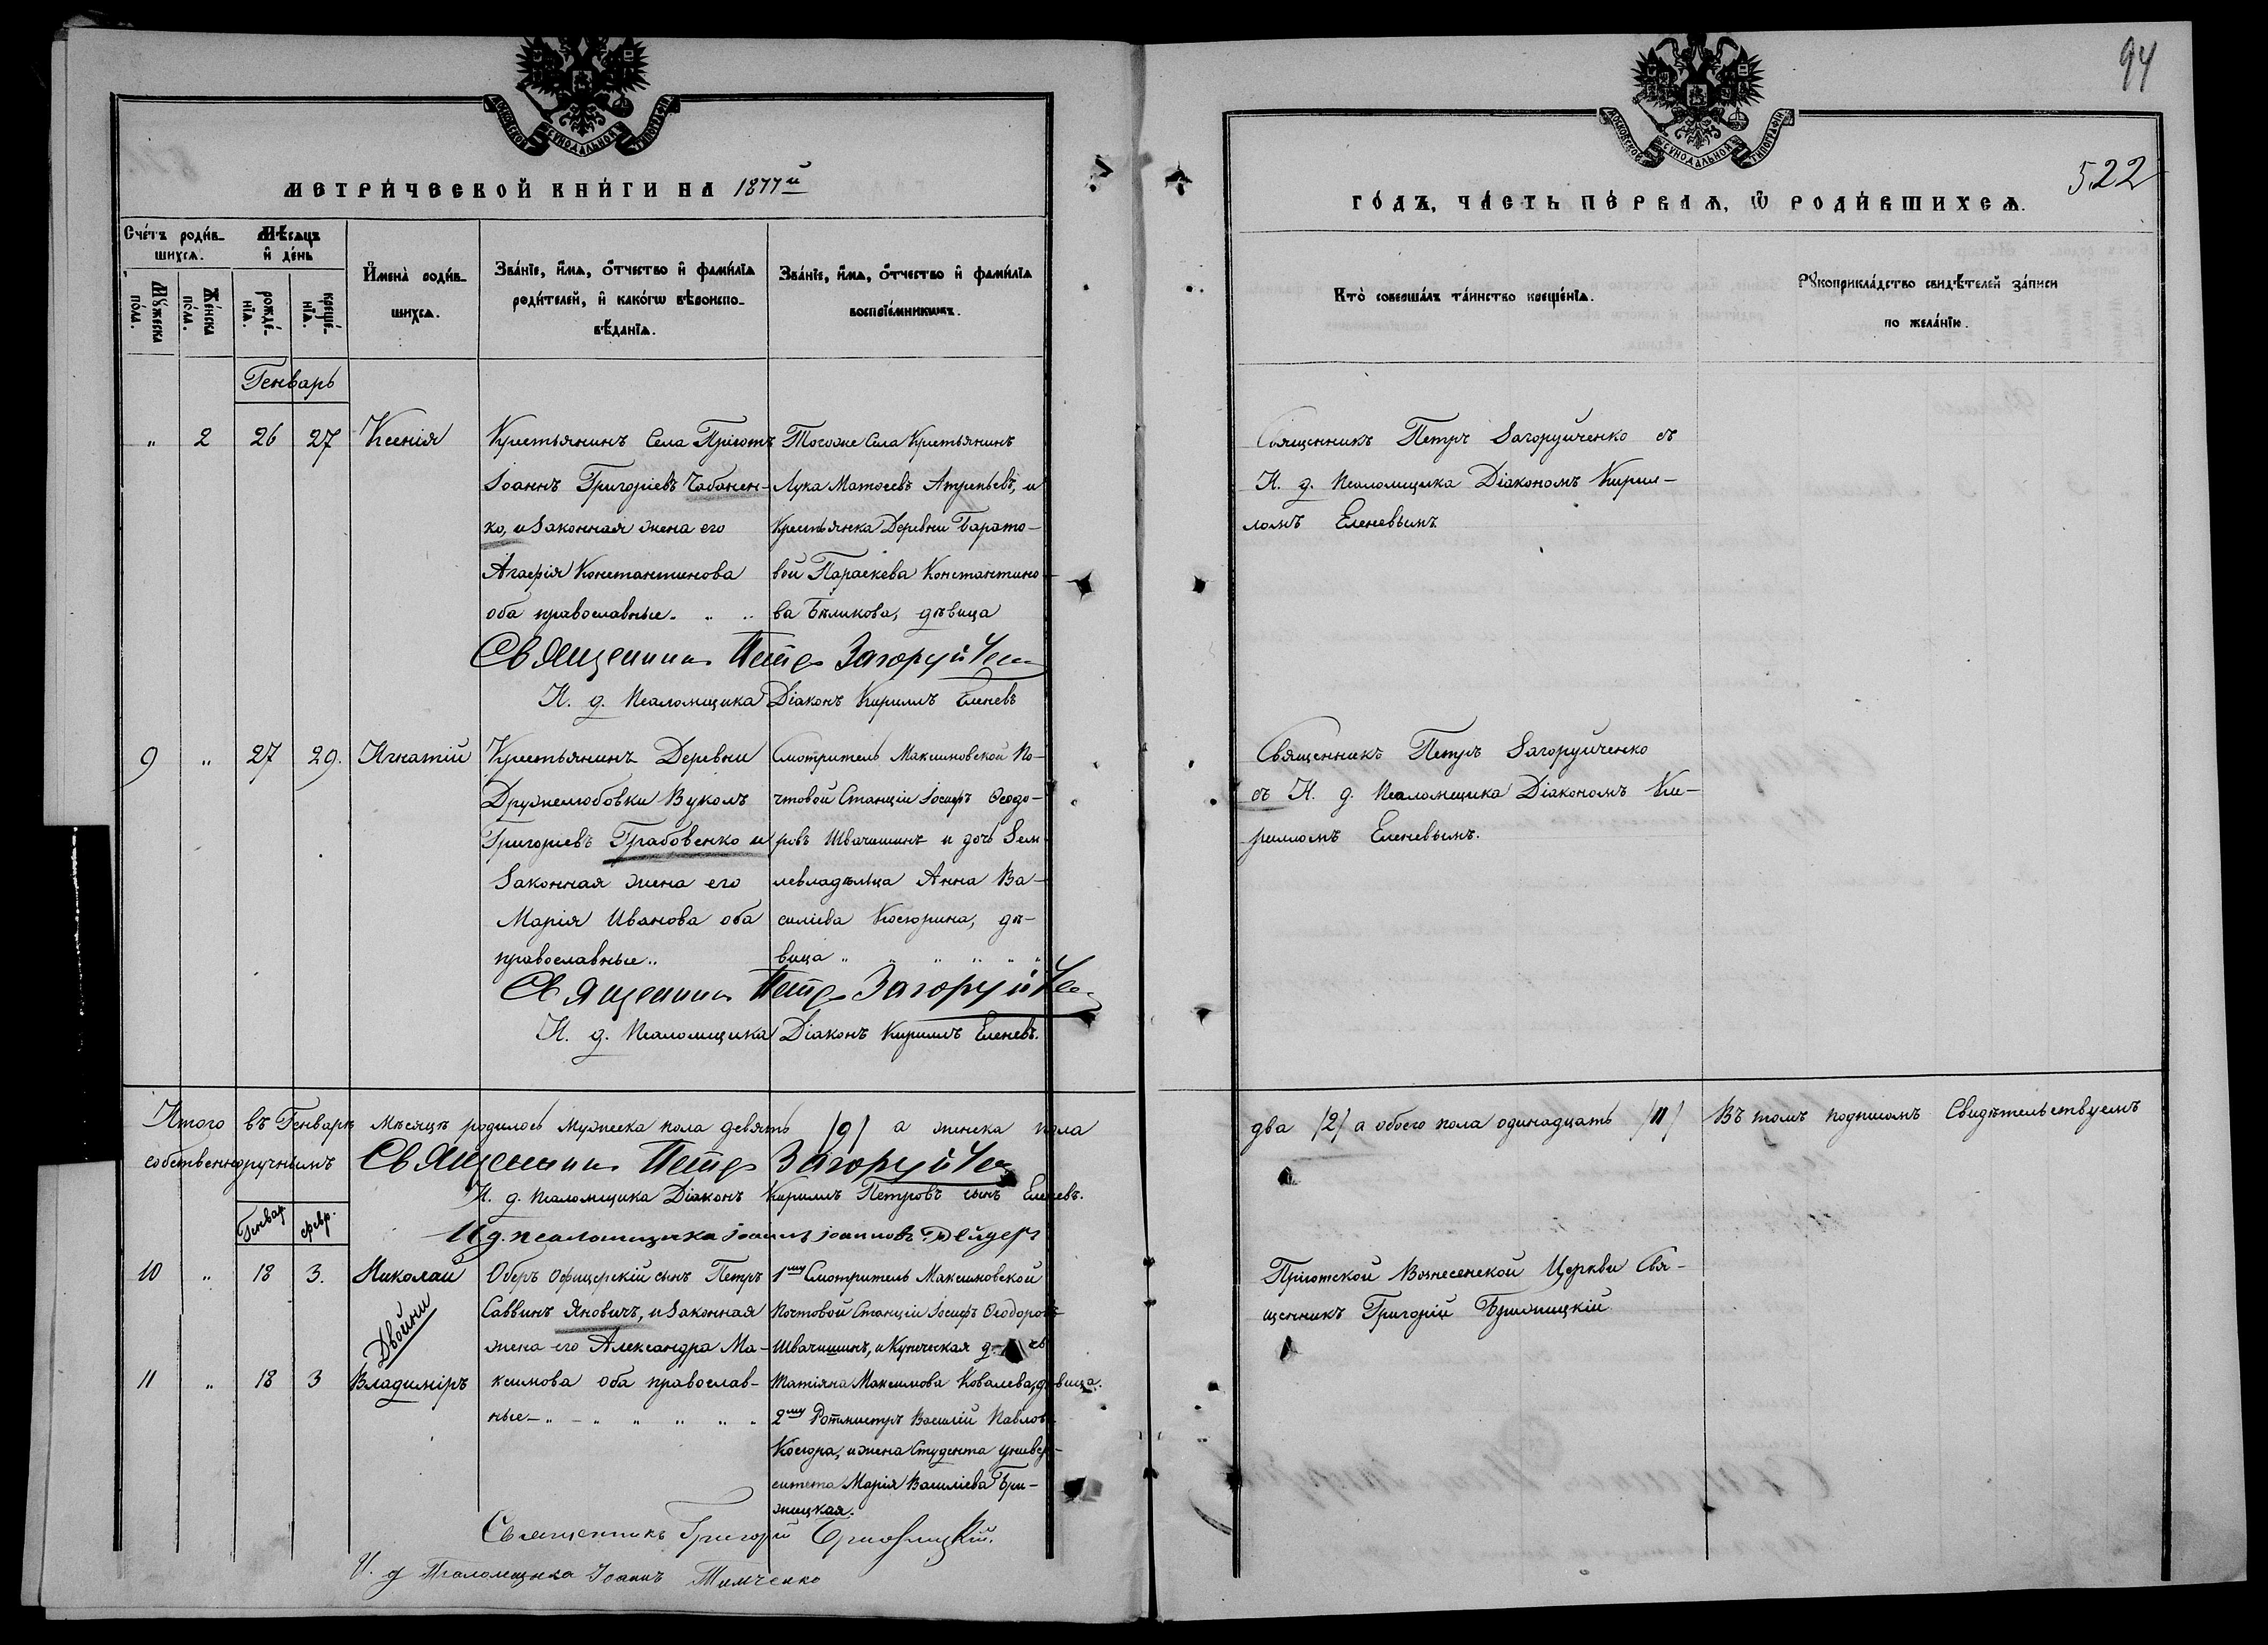 94
МОСКОВСКОЙ СѴНОДАЛЬНОЙ ТИПОГРАФІИ
МЕТРИ́ЧЕСКОЙ КНИ́ГИ НА 1877й
Сче́тъ роди́в-
шихсѧ.
Мѣ́сѧцъ
и҆ де́нь
Мꙋ́жеска по́ла.
Же́нска по́ла.
рожде́-
нїѧ.
креще́-
нїѧ.
И҆мена̀ роди́в-
шихсѧ.
Зва́нїе, и҆́мѧ, ѻ҆́тчество и҆ фами́лїѧ
роди́телей, и҆ како́гѡ вѣроиспо-
вѣ́данїѧ.
Зва́нїе, и҆́мѧ, ѻ҆́тчество и҆ фами́лїѧ
воспрїе́мникѡвъ.
Генварь
" 2 26 27 Ксенія
Крестьянинъ Села Пріютъ
Іоаннъ Григоріевъ Чабанен-
ко, и законная жена его
Агафія Константинова
оба православные. " "
Тогоже Села Крестьянинъ
Лука Матѳеевъ Атрепьевъ, и
Крестьянка Деревни Барато-
вой Параскева Константино-
ва Бѣликова, дѣвица
Священникъ Петръ Загоруйченко
И. д. Псаломщика Діаконъ Кириллъ Еленевъ
9 " 27 29. Игнатій
Крестьянинъ Деревни
Дружелюбовки Вуколъ
Григоріевъ Грабовенко и
Законная жена его
Марія Иванова оба
православные "
Смотритель Максимовской По-
чтовой Станціи Іосифъ Ѳеодо-
ровъ Швачишинъ и дочь Зем-
левладѣльца Анна Ва-
силіева Косюрина, дѣ-
вица " " " " "
Священникъ Петръ Загоруйченко
И. д. Псаломщика Діаконъ Кириллъ Еленевъ.
Итого въ Генварѣ Мѣсяцѣ родилось мужеска пола девять /9/ а женска пола
собственноручнымъ Священникъ Петръ Загоруйченко
И. д. Псаломщика Діаконъ Кириллъ Петровъ сынъ Еленевъ.
И д. псаломщика Іоаннъ Іоанновъ
Генвар февр.
10 " 18 3. Николай
Двойни
11 " 18 3 Владиміръ
Оберъ Офицерскій сынъ Петръ
Саввинъ Яновичъ, и Законная
жена его Александра Ма-
ксимова оба православ-
ные - " - " " " " "
1му Смотритель Максимовской
Почтовой Станціи Іосифъ Ѳеодоровъ
Швачишинъ, и Купеческая
Татіяна Максимова Ковалева, дѣвица.
2му Ротмистръ Василій Павловъ
Косюра, и жена Студента универ-
ситета Марія Василіева Бри-
жицкая.
Священникъ Григорій Брижицкій.
И. д Псаломщика Іоаннъ Тимченко
522
МОСКОВСКОЙ СѴНОДАЛЬНОЙ ТИПОГРАФІИ
ГО́ДЪ, ЧА́СТЬ ПЕ́РВАѦ, Ѡ҆ РОДИ́ВШИХСѦ.
Кто̀ соверша́лъ та́инство креще́нїѧ.
Рꙋкоприкла́дство свидѣ́телей за́писи
по жела́нїю.
Священникъ Петръ Загоруйченко съ
И. д. Псаломщика Діакономъ Кирил-
ломъ Еленевымъ
Священникъ Петръ Загоруйченко
съ И. д. Псаломщика Діакономъ Ки-
рилломъ Еленевымъ.
два /2/ а обоего пола одинадцать /11/ Въ томъ подписомъ Свидѣтельствуемъ
Пріютской Вознесенской Церкви Свя-
щенникъ Григорій Брижицкій